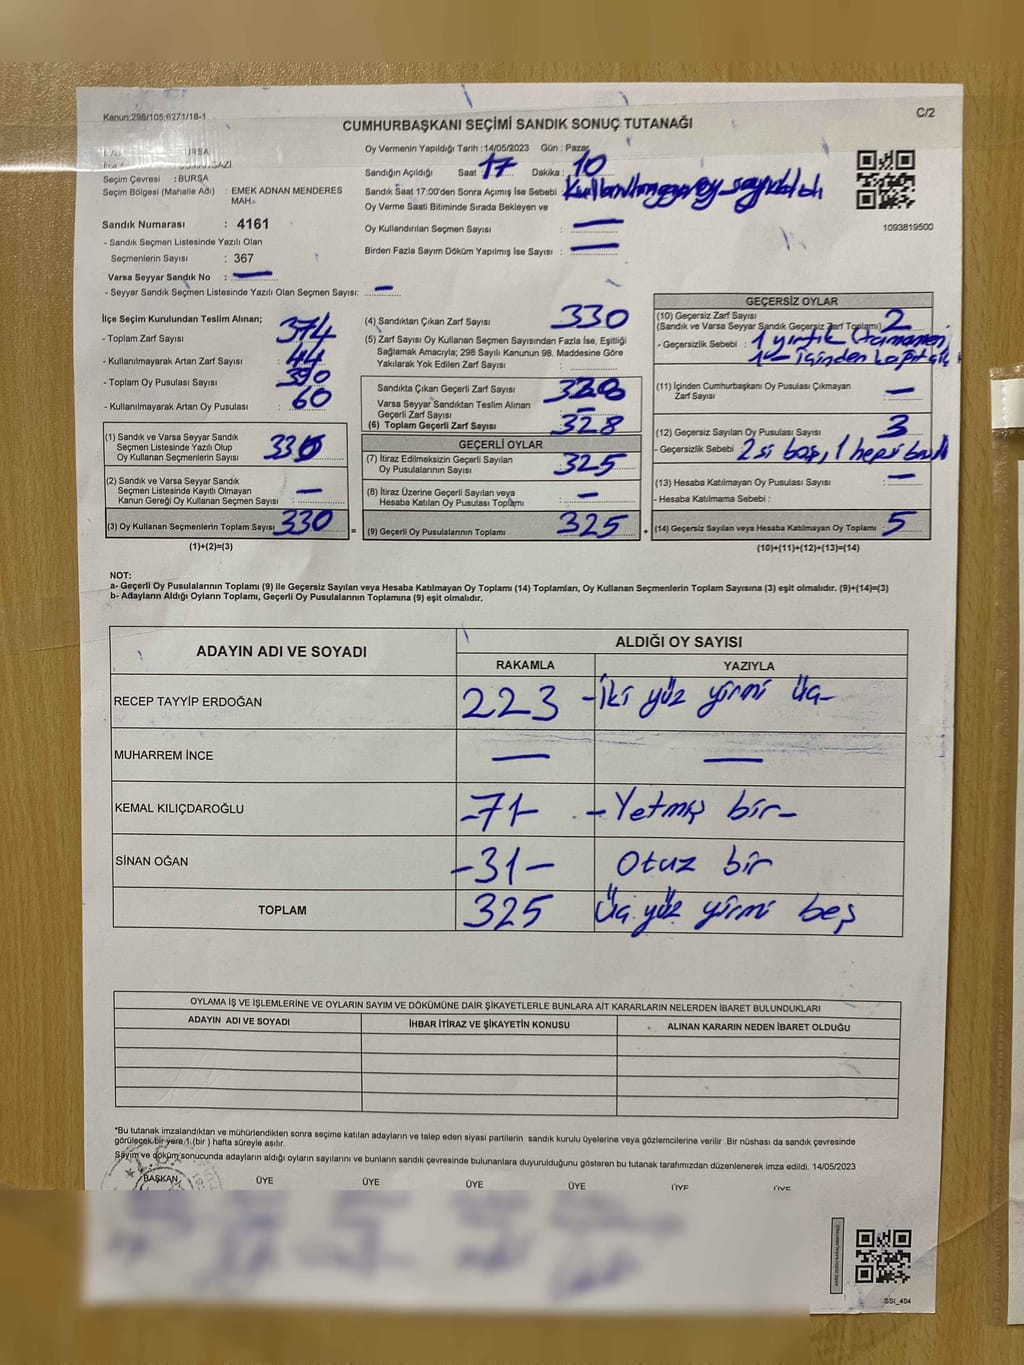 Kanun:298/105,6271/18-1
C/2
CUMHURBAŞKANI SEÇİMİ SANDIK SONUÇ TUTANAĞI
Oy Vermenin Yapıldığı Tarih : 14/05/2023 Gün : Pazar
Sandığın Açıldığı Saat 17 Dakika : 10
Sandık Saat 17:00'den Sonra Açılmış İse Sebebi
Oy Verme Saati Bitiminde Sırada Bekleyen ve
Oy Kullandırılan Seçmen Sayısı : —
Birden Fazla Sayım Döküm Yapılmış İse Sayısı : —
Seçim Çevresi : BURSA
Seçim Bölgesi (Mahalle Adı) : EMEK ADNAN MENDERES
MAH.
Sandık Numarası : 4161
- Sandık Seçmen Listesinde Yazılı Olan
Seçmenlerin Sayısı : 367
Varsa Seyyar Sandık No : —
- Seyyar Sandık Seçmen Listesinde Yazılı Olan Seçmen Sayısı: —
1093819500
İlçe Seçim Kurulundan Teslim Alınan;
- Toplam Zarf Sayısı : 374
- Kullanılmayarak Artan Zarf Sayısı : 44
- Toplam Oy Pusulası Sayısı : 390
- Kullanılmayarak Artan Oy Pusulası : 60
(1) Sandık ve Varsa Seyyar Sandık
Seçmen Listesinde Yazılı Olup
Oy Kullanan Seçmenlerin Sayısı : 330
(2) Sandık ve Varsa Seyyar Sandık
Seçmen Listesinde Kayıtlı Olmayan
Kanun Gereği Oy Kullanan Seçmen Sayısı : —
(3) Oy Kullanan Seçmenlerin Toplam Sayısı : 330
(1)+(2)=(3)
(4) Sandıktan Çıkan Zarf Sayısı : 330
(5) Zarf Sayısı Oy Kullanan Seçmen Sayısından Fazla İse, Eşitliği
Sağlamak Amacıyla; 298 Sayılı Kanunun 98. Maddesine Göre
Yakılarak Yok Edilen Zarf Sayısı :
Sandıkta Çıkan Geçerli Zarf Sayısı : 328
Varsa Seyyar Sandıktan Teslim Alınan
Geçerli Zarf Sayısı : —
(6) Toplam Geçerli Zarf Sayısı : 328
GEÇERLİ OYLAR
(7) İtiraz Edilmeksizin Geçerli Sayılan
Oy Pusulalarının Sayısı : 325
(8) İtiraz Üzerine Geçerli Sayılan veya
Hesaba Katılan Oy Pusulaları Toplamı : —
= (9) Geçerli Oy Pusulalarının Toplamı : 325 +
GEÇERSİZ OYLAR
(10) Geçersiz Zarf Sayısı
(Sandık ve Varsa Seyyar Sandık Geçersiz Zarf Toplamı) : 2
- Geçersizlik Sebebi : 1 yırtık (tamamen)
(11) İçinden Cumhurbaşkanı Oy Pusulası Çıkmayan
Zarf Sayısı : —
(12) Geçersiz Sayılan Oy Pusulası Sayısı : 3
- Geçersizlik Sebebi : 2 si boş, 1 hepsi
(13) Hesaba Katılmayan Oy Pusulası Sayısı : —
- Hesaba Katılmama Sebebi :
(14) Geçersiz Sayılan veya Hesaba Katılmayan Oy Toplamı : 5
(10)+(11)+(12)+(13)=(14)
NOT:
a- Geçerli Oy Pusulalarının Toplamı (9) ile Geçersiz Sayılan veya Hesaba Katılmayan Oy Toplamı (14) Toplamları, Oy Kullanan Seçmenlerin Toplam Sayısına (3) eşit olmalıdır. (9)+(14)=(3)
b- Adayların Aldığı Oyların Toplamı, Geçerli Oy Pusulalarının Toplamına (9) eşit olmalıdır.
ADAYIN ADI VE SOYADI
ALDIĞI OY SAYISI
RAKAMLA YAZIYLA
RECEP TAYYİP ERDOĞAN 223 -İki yüz yirmi üç-
MUHARREM İNCE — —
KEMAL KILIÇDAROĞLU -71- -Yetmiş bir-
SİNAN OĞAN -31- Otuz bir
TOPLAM 325 Üç yüz yirmi beş
OYLAMA İŞ VE İŞLEMLERİNE VE OYLARIN SAYIM VE DÖKÜMÜNE DAİR ŞİKAYETLERLE BUNLARA AİT KARARLARIN NELERDEN İBARET BULUNDUKLARI
ADAYIN ADI VE SOYADI İHBAR İTİRAZ VE ŞİKAYETİN KONUSU ALINAN KARARIN NEDEN İBARET OLDUĞU
*Bu tutanak imzalandıktan ve mühürlendikten sonra seçime katılan adayların ve talep eden siyasi partilerin sandık kurulu üyelerine veya gözlemcilerine verilir .Bir nüshası da sandık çevresinde
görülecek bir yere 1 (bir ) hafta süreyle asılır.
Sayım ve döküm sonucunda adayların aldığı oyların sayılarını ve bunların sandık çevresinde bulunanlara duyurulduğunu gösteren bu tutanak tarafımızdan düzenlenerek imza edildi. 14/05/2023
BAŞKAN ÜYE ÜYE ÜYE ÜYE ÜYE ÜYE
SSI_404